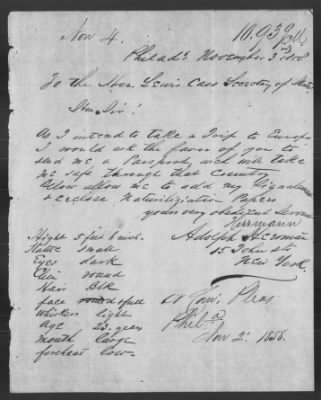 Nov 4. 10.939
Philadᵃ November 3ʳᵈ 1858
To the Hon. Lewis Cass Secretary of State
Hon Sir!
As I intend to take a Trip to Europe
I would ask the favor of you to
send me a Passport, wich will take
me safe through that Country
Below allow me to add my Signalement
& enclose Naturiligiation Papers
yours very obedient Servant
Herrmann
Adolph Ackerman
15 John st.
New York.
Hight 5 feet 6 inch.
Statue small
Eyes dark
Chin round
Hair Blk
face round & full
whiskers light
age 23 years
mouth large
forehead low
Philᵃ
Nov 2ᵈ 1858.